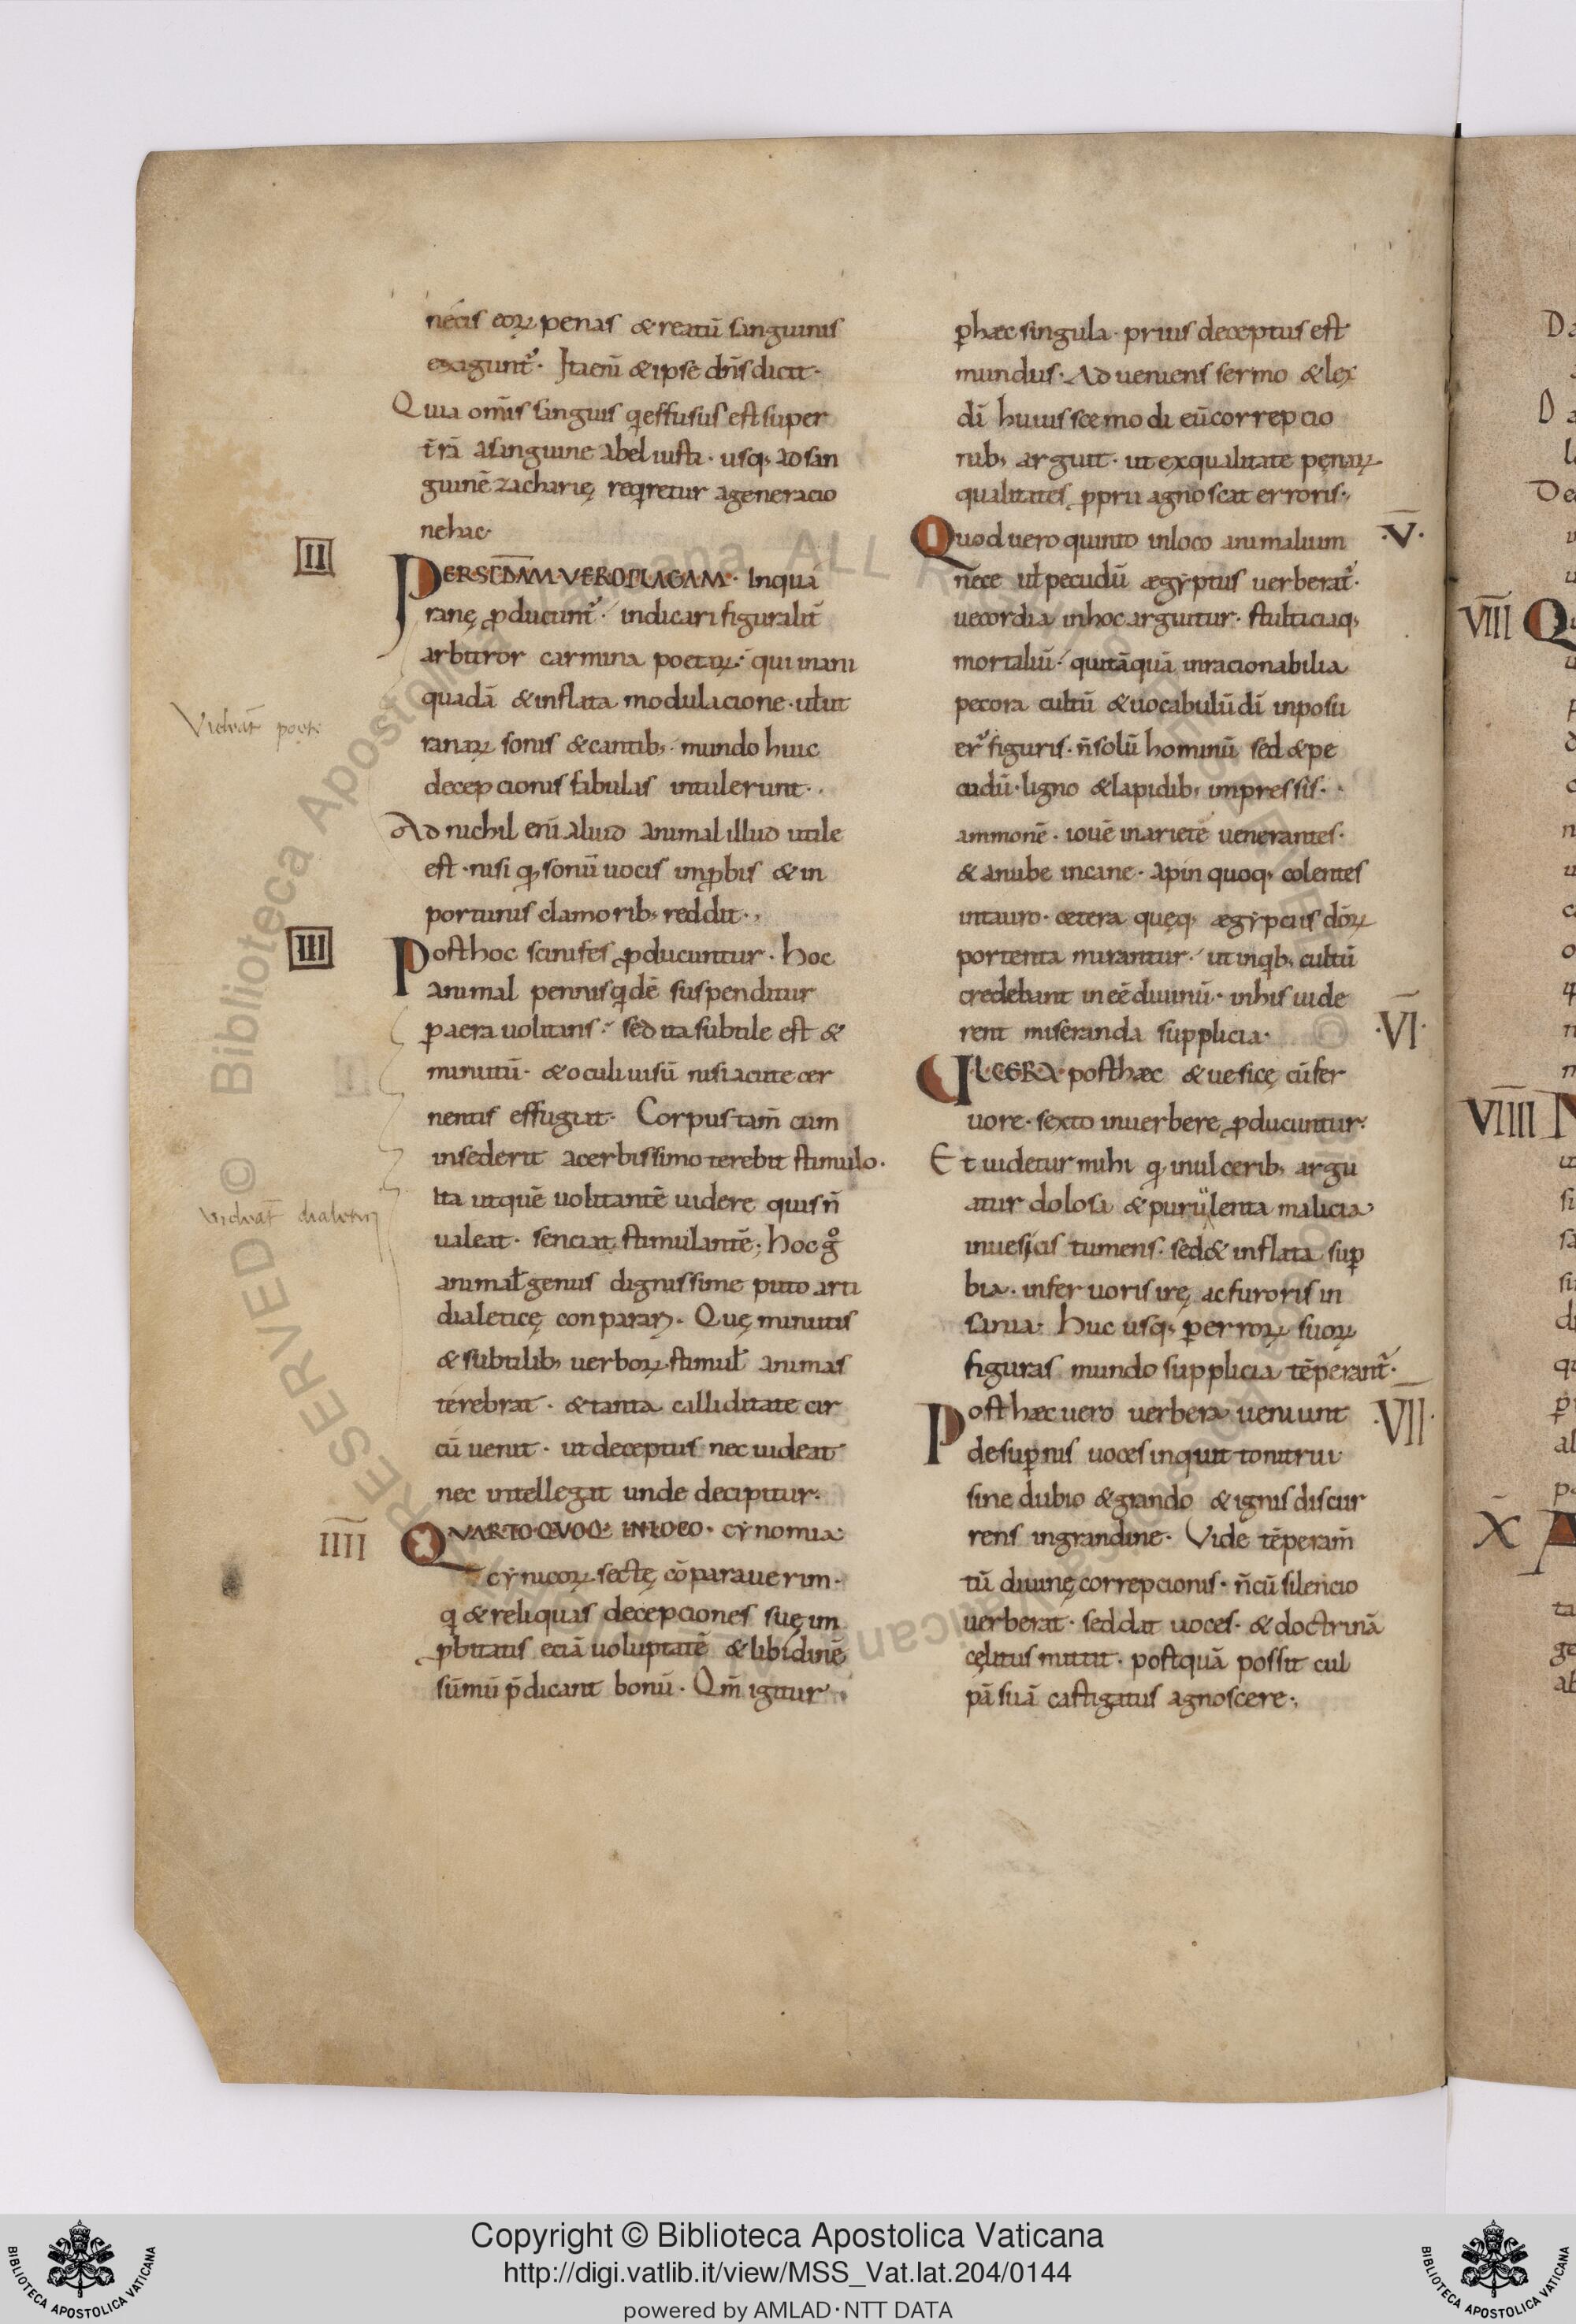 necis eoꝝ penas & reatū sanguinis
exigunt᷑· Ita eni̅ & ipse dn̅s dicit·
Quia om̅is sanguis q̣ effusus est super
t̅rā a sanguine abel iusti· usq; ad san
guinē zacharię reqiretur a generacio
ne hac·
II
PER SC̅DAM VERO PLAGAM· In qua
ranę ꝓducunt᷑· indicari figuralit̅
arbitror carmina poetaꝝ· qui inani
quadā & inflata modulacione· uł ut
ranaꝝ sonis & cantib; mundo huic
decepcionis fabulas intulerunt·
Ad nichil eni̅ aliud animal illud utile
est· nisi q, sonū uocis inꝓbis & in
portunis clamorib; reddit·,
III
Post hoc scinifes ꝓducuntur· hoc
animal pennis qidē suspenditur
ꝑ aera uolitans· sed ita subtile est &
minutū· & oculi uisū nisi acute cer
nentis effugiat· Corpus tam̅ cum
insederit acerbissimo terebit stimulo·
ita ut quē uolitantē uidere quis n̅
ualeat· senciat stimulantē; hoc gͦ
animał genus dignissime puto arti
dialeticę conparari· Quę minutis
& subtilib; uerboꝝ stimuł animas
terebrat· & tanta calliditate cir
cū uenit· ut deceptus nec uideat
nec intellegat unde decipitur·
IIII
QVARTO QVOQ; IN LOCO· cẏnomia
cẏnicoꝝ sectę cōparauerim·
q & reliquas decepciones suę im
ꝓbitatis eciā uoluptatē & libidinē
sūmū p̄dicant bonū· Qm̅ igitur
ꝑ hæc singula· prius deceptus est
mundus· Adueniens sermo & lex
dī huiuscemodi eū correpcio
nib; arguit· ut ex qualitate pęnaꝝ
qualitates ꝓprii agnoscat erroris·,
V
Quod uero quinto in loco animalium
nece uł pecudū ægẏptus uerberat᷑·
uecordia in hoc arguitur· stulticiaq;
mortaliū· qui tāquā inracionabilia
pecora cultū & uocabulū dī inposu
er᷑ figuris· n̅ solū hominū sed & pe
cudū· ligno & lapidib; impressis·
ammonē· iouē in arietē uenerantes·
& anube in cane· apin quoq; colentes
in tauro· cetera quęq; ægẏpcius dōꝝ
portenta mirantur· ut in qib; cultū
credebant inēē diuinū· in his uide
rent miseranda supplicia·
VI
VLCERA post hæc & uesicę cū fer
uore· sexto in uerbere ꝓducuntur·
Et uidetur mihi q, in ulcerib; argu
atur dolosa & purulenta malicia
in uesicis tumens· sed & inflata suꝑ
bia· in feruoris irę ac furoris in
sania· huc usq; ꝑ erroꝝ suoꝝ
figuras mundo supplicia tēperant᷑·
VII
Post hæc uero uerbera ueniunt
de suꝑnis uoces inquit tonitrui
sine dubio & grando & ignis discur
rens in grandine· Vide tēperam̅
tū diuinę correpcionis· n̅ cū silencio
uerberat· sed dat uoces· & doctrinā
cęlitus mittit· postquā possit cul
pā suā castigatus agnoscere·,
VIII
VIIII
X
Copyright © Biblioteca Apostolica Vaticana
http://digi.vatlib.it/view/MSS_Vat.lat.204/0144
powered by AMLAD·NTT DATA
BIBLIOTECA APOSTOLICA VATICANA
BIBLIOTECA APOSTOLICA VATICANA